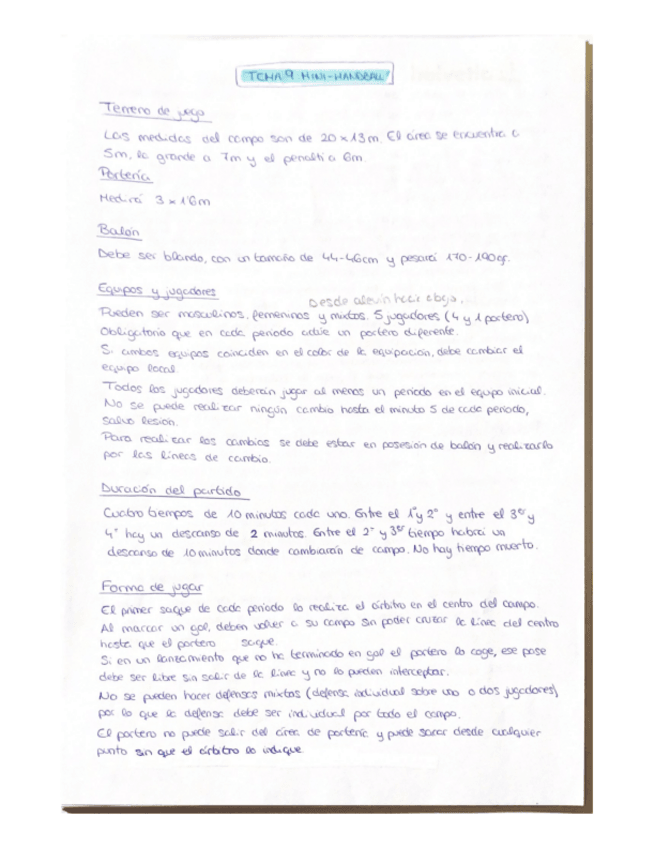 TEMA 9 MINI-HANDBALL
Terreno de juego
Las medidas del campo son de 20 x 13 m. El área se encuentra a
5m, la grande a 7m y el penalti a 6m.
Portería
Medirá 3 x 1'6m
Balón
Debe ser blando, con un tamaño de 44-46cm y pesará 170-190gr.
Equipos y jugadores
Desde alevín hacia abajo.
Pueden ser masculinos, femeninos y mixtos. 5 jugadores (4 y 1 portero)
Obligatorio que en cada periodo actúe un portero diferente.
Si ambos equipos coinciden en el color de la equipación, debe cambiar el
equipo local.
Todos los jugadores deberán jugar al menos un periodo en el equipo inicial.
No se puede realizar ningún cambio hasta el minuto 5 de cada periodo,
salvo lesión.
Para realizar los cambios se debe estar en posesión de balón y realizarlo
por las líneas de cambio.
Duración del partido
Cuatro tiempos de 10 minutos cada uno. Entre el 1º y 2º y entre el 3er y
4º hay un descanso de 2 minutos. Entre el 2º y 3er tiempo habrá un
descanso de 10 minutos donde cambiarán de campo. No hay tiempo muerto.
Forma de jugar
El primer saque de cada periodo lo realiza el árbitro en el centro del campo.
Al marcar un gol, deben volver a su campo sin poder cruzar la línea del centro
hasta que el portero saque.
Si en un lanzamiento que no ha terminado en gol el portero lo coge, ese pase
debe ser libre sin salir de la línea y no lo pueden interceptar.
No se pueden hacer defensas mixtas (defensa individual sobre uno o dos jugadores)
por lo que la defensa debe ser individual por todo el campo.
El portero no puede salir del área de portería y puede sacar desde cualquier
punto sin que el árbitro lo indique.